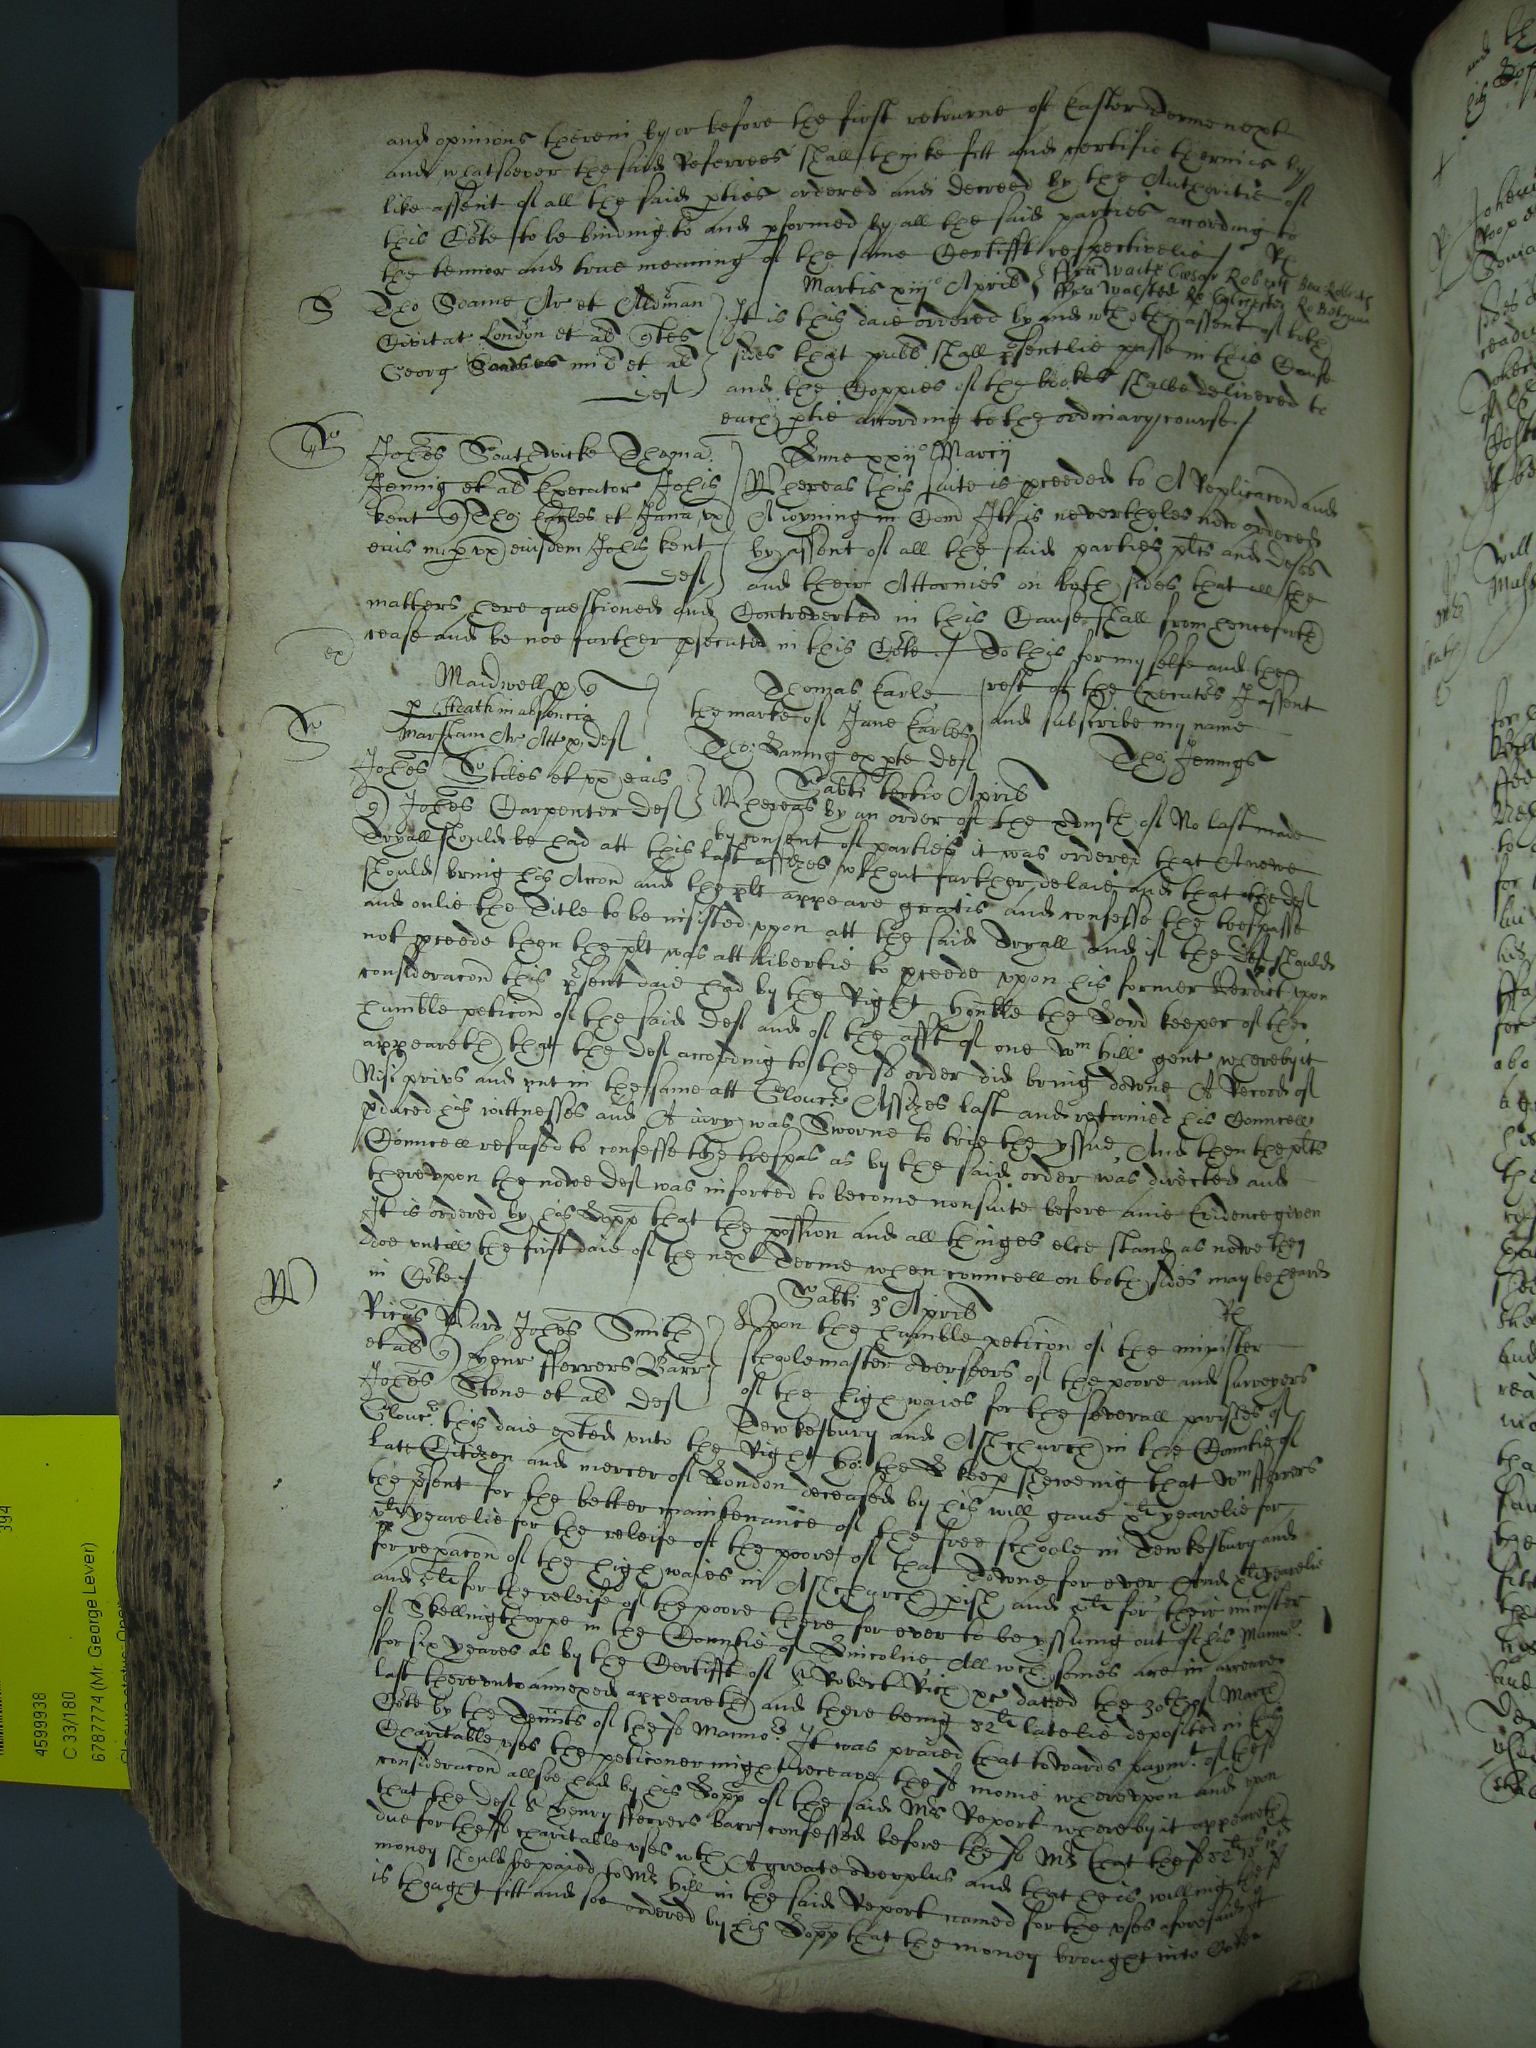 and opinions therein by or before the first retourne of Easter Terme next
and whatsoever the said Referrees shall thinke fitt and certifie thereinis by
like assent of all the said pties ordered and decreed by the Authoritie of
this Corte to be binding to and pformed by all the said parties according to
the tennor and true meaning of the same Certifft respectivelie /
Rx
Martis xiij° Aprilis
S
Tho Soame Ar et Aldman
Civitat London et al qtes
Georg
et al
def
It is this daie ordered by and wth the assent of both
sides that publ shall psentlie passe in this Cause
and the Coppies of the bookes shalbe delivered to
each ptie according to the ordinary course /
So
Johes Southwicke Thoma
Jennig et al Executor Johis
kent q Tho: Earles et Jana ux
eius nup ux eiusdem Johis kent
def
Lune xxij° Marcij
Whereas this suite is pceeded to A Replicacon and
A ioyning in Com It is neverthles now ordered
by assent of all the said parties plts and defts
and their Attornies on both sides that all the
matters here questioned and Controverted in this Cause shall from henceforth
cease and be noe further psecuted in this Corte /
Do this for my selfe and the
ex
Maidwell p q
p Heath in absencia
Marsham Ar Att p def
Thomas Earle
the marke of Jane Earles
Tho: Baning ex pte def
rest of the Executrs I assent
and subscribe my name
Tho: Jenings
So
Johes Stiles et ux eius
q Johes Carpenter def
Sabti tertio Aprilis
Whereas by an order of the xxvijth of No last made
by consent of parties it was ordered that A newe
Tryall should be had att this last assizes wthout further delaie and that the def
should bring his Accon and the plt appeare gratis and confesse the trespasse
and onlie the Title to be insisted upon att the said Tryall and if the def should
not pceede then the plt was att libertie to pceede upon his former Verdict upon
consideracon this psent daie had by the Right honble the Lord keeper of the
humble peticon of the said def and of the afft of one Wm Hill gent whereby it
appeareth that the def according to the sd order did bring downe A Record of
Nisi prius and put in the same att Gloucr Assizes last and retained his Councell
pduced his wittnesses and A iury was Sworne to trie the yssue, And then the plts
Councell refused to confesse the trespas as by the said order was directed and
thereupon the nowe def was inforced to become nonsuite before anie Evidence given
It is ordered by his Lopp that the possion and all thinges else stand as nowe they
doe untill the first daie of the next Terme when councell on both sides may be heard
in Corte /
W
Ricus Ward Johes Smith
et al q henr fferrers Barr
Johes Stone et al def
Sabti 3° Aprilis
Rx
Upon the humble peticon of the minister
scholemaster overseers of the poore and surveyors
of the high waies for the severall parishes of
Tewkesbury and Ashchurch in the Countie of
Gloucr this daie exhted unto the Right ho: the L keep shewing that Wm fferrers
late Citizen and mercer of London deceased by his will gave xli yearelie for
the psent for the better maintenance of the free schoole in Tewkesbury and
xli yearelie for the releife of the poore of that towne for ever And xli yearelie
for repacon of the high waies in Ashchurch pish and 5li for their minister
and 5li for the releife of the poore there for ever to be yssuing out of his Mannor
of Skellingthorpe in the Countie of Lincolne All wch somes are in arreare
for six yeares as by the Certifft of Sr Robert Rich &c dated the 30th of March
last thereunto annexed appeareth and there being 32li latelie deposited in this
Corte by the Tennts of the sd Mannor It was praied that towards paymt of thes
Charitable uses the peticoner might receave the sd monie whereupon and upon
consideracon allsoe had by his Lopp of the said Mrs Report whereby it appeareth
that the def Sr Henry fferrers Barr confessed before the sd Mr that the sd 32li is
due for thes charitable uses wth A greate overplus and that he is willing the sd
money should be paied to Mr Hill in the said Report named for the uses aforesaid It
is thought fitt and soe ordered by his Lopp that the money brought into Corte
4599938
C 33/180
6787774 (Mr. George Lever)
394